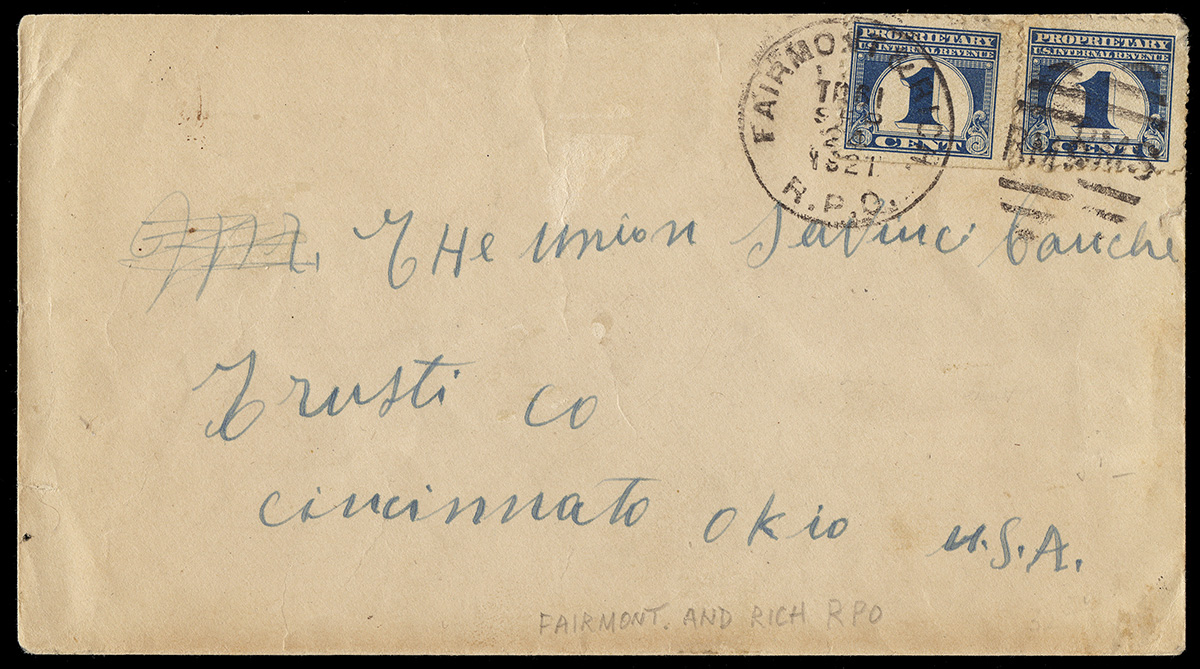 PROPRIETARY
U.S. INTERNAL REVENUE
1
CENT
PROPRIETARY
U.S. INTERNAL REVENUE
1
CENT
FAIRMO
1921
R.P.O.
THe union Savinci Canche
Trusti co
cincinnato okio U.S.A.
FAIRMONT. AND RICH RPO